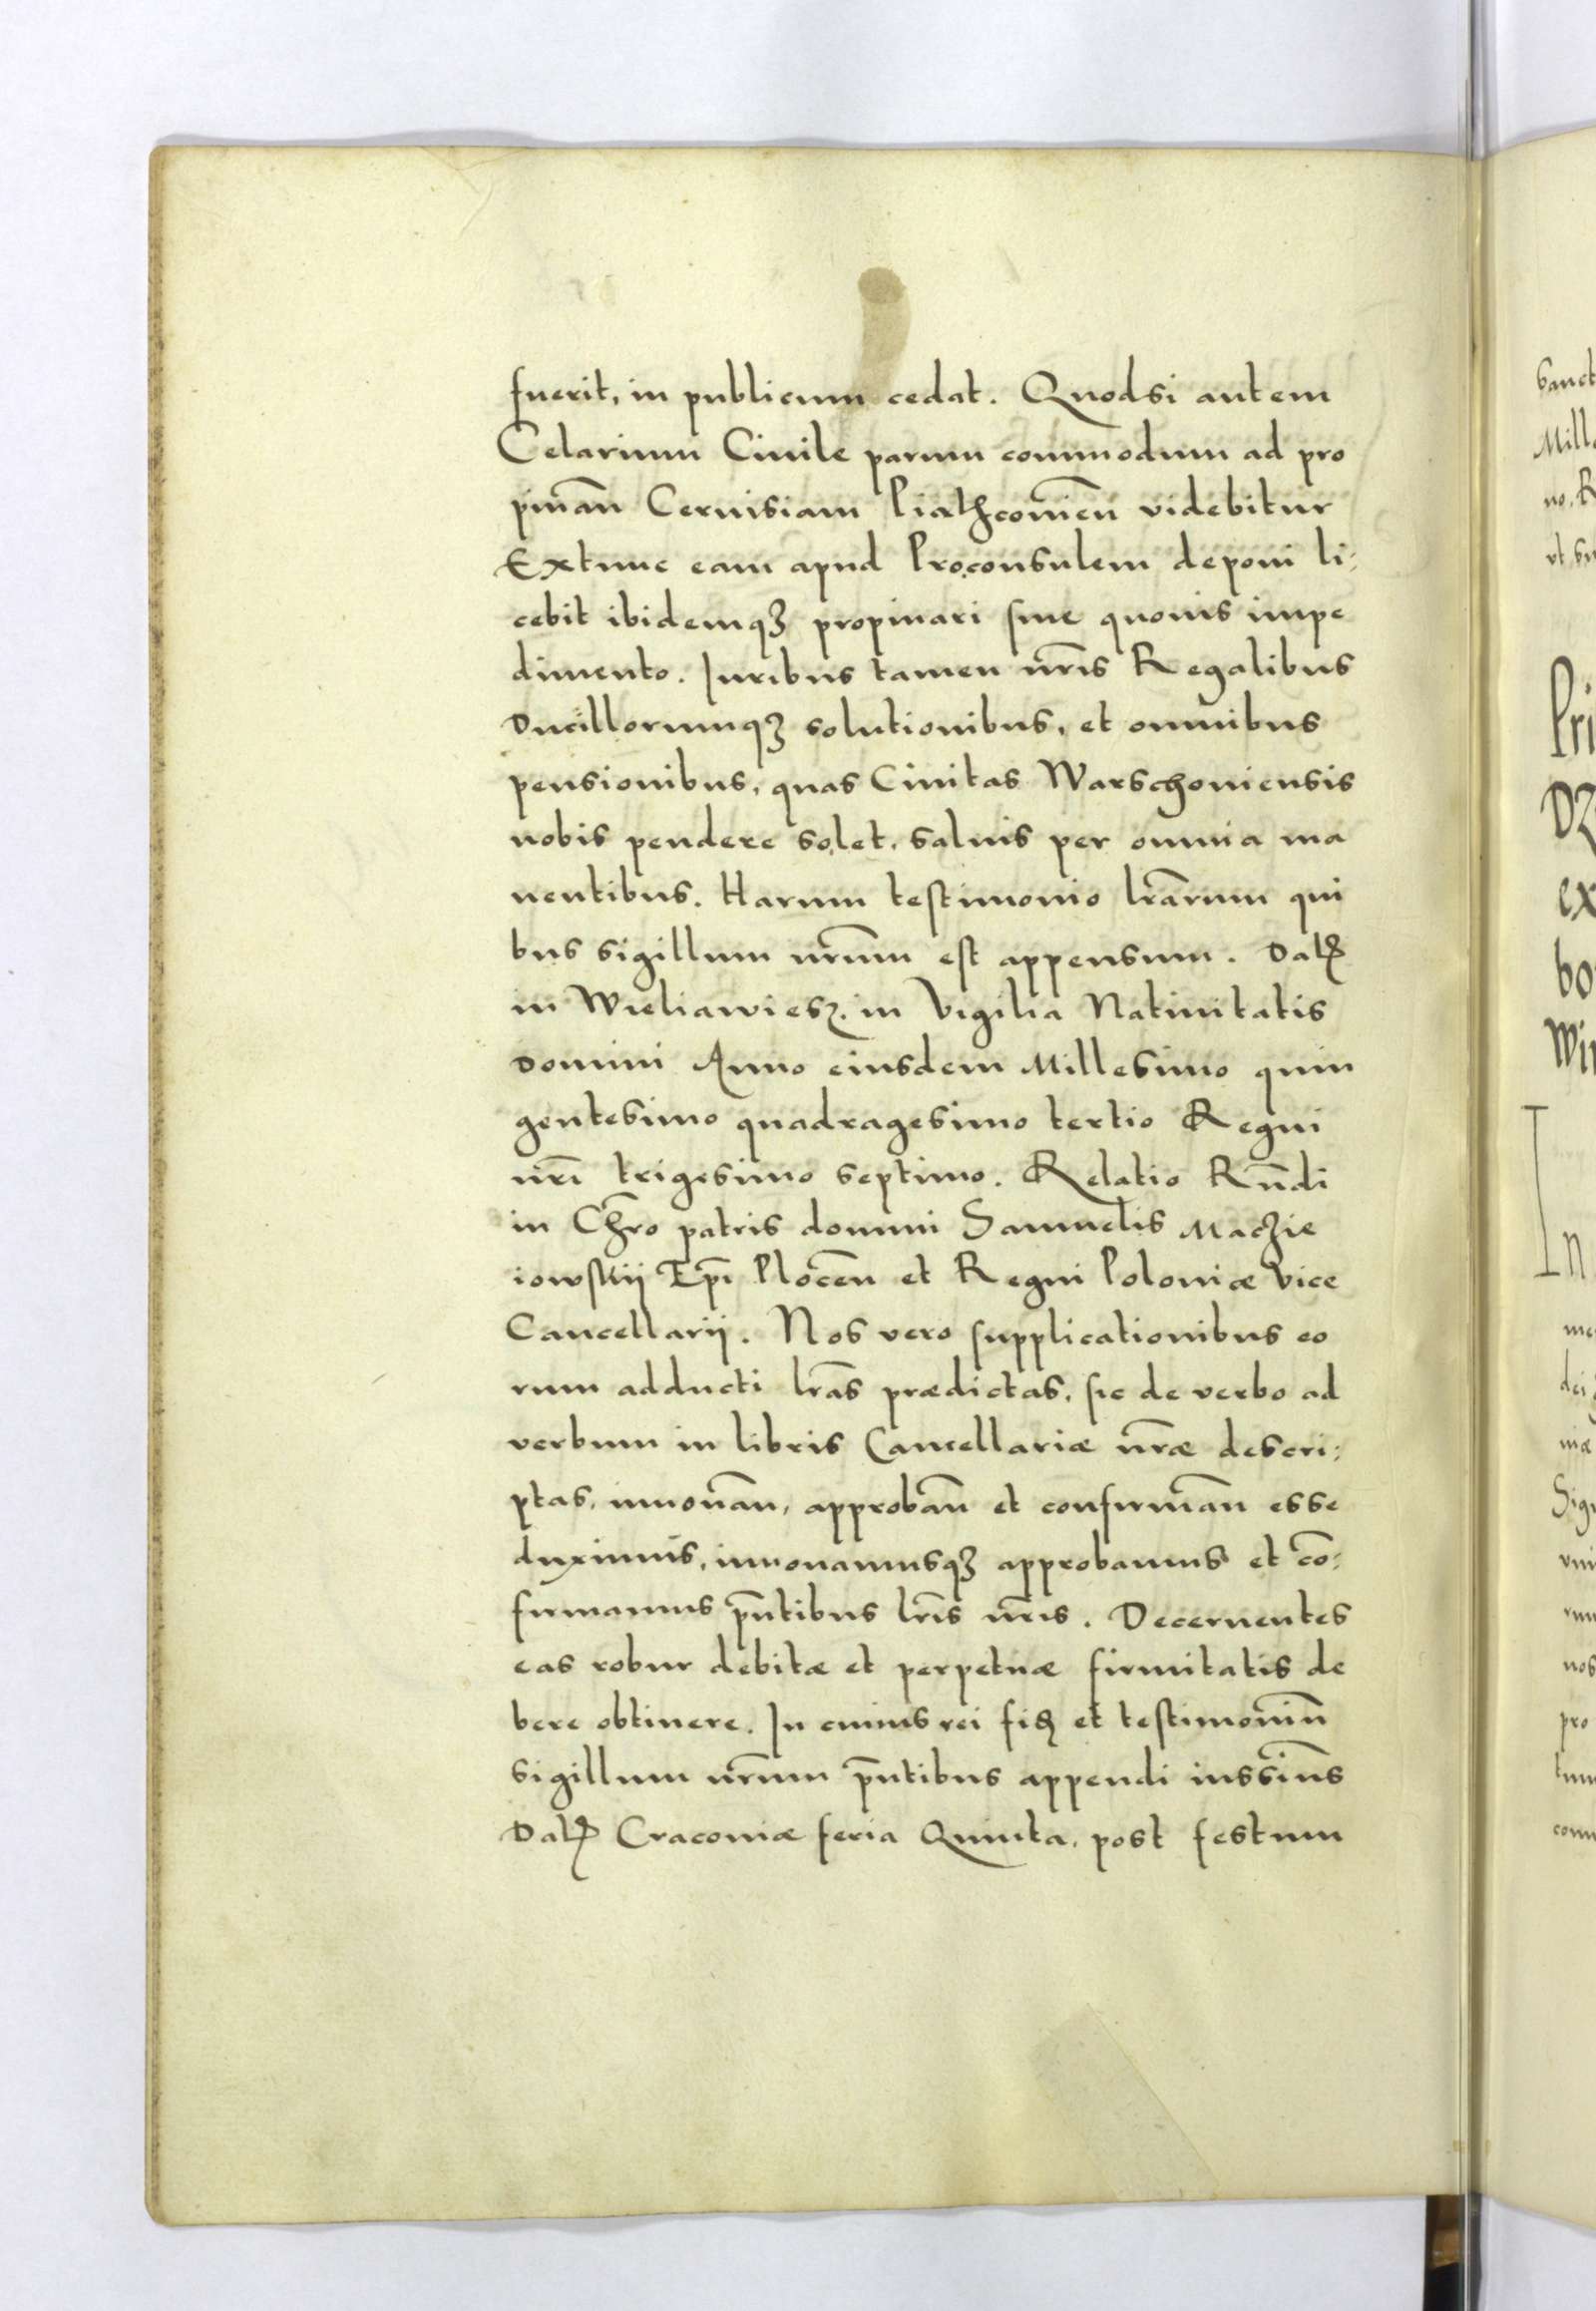 fuerit, in publicum cedat. Quodsi autem
Celarium Ciuile parum commodum ad pro
pinan̄ Ceruisiam Piathconien̄ videbitur
Extunc eam apud Proconsulem deponi li:
cebit ibidemqꝫ propinari sine quouis impe
dimento. Iuribus tamen nr̄is Regalibus
Ducillorumqꝫ solutionibus, et omnibus
pensionibus, quas Ciuitas Warschouiensis
nobis pendere solet, saluis per omnia ma
nentibus. Harum testimonio lr̄arum qui
bus sigillum nr̄um est appensum. Datꝭ
in Wieliawiesz. in Vigilia Natiuitatis
Domini Anno eiusdem Millesimo quin
gentesimo quadragesimo tertio Regni
nr̄i trigesimo septimo. Relatio Rn̄di
in Chr̄o patris domini Samuelis Maczie
iowskij Ep̄i Plocen̄ et Regni Poloniæ Vice
Cancellarij. Nos vero supplicationibus eo
rum adducti lr̄as prædictas, sic de verbo ad
verbum in libris Cancellariæ nr̄æ descri:
ptas, innouan̄, approban̄ et confirman̄ esse
duximus, innouamusqꝫ approbamus et co̅:
firmamus pn̄tibus lr̄is nr̄is. Decernentes
eas robur debitæ et perpetuæ firmitatis de
bere obtinere. In cuius rei fidꝫ et testimoniu̅
sigillum nr̄um pn̄tibus appendi iussim̅us
Datꝭ Cracouiæ feria Quinta, post festum